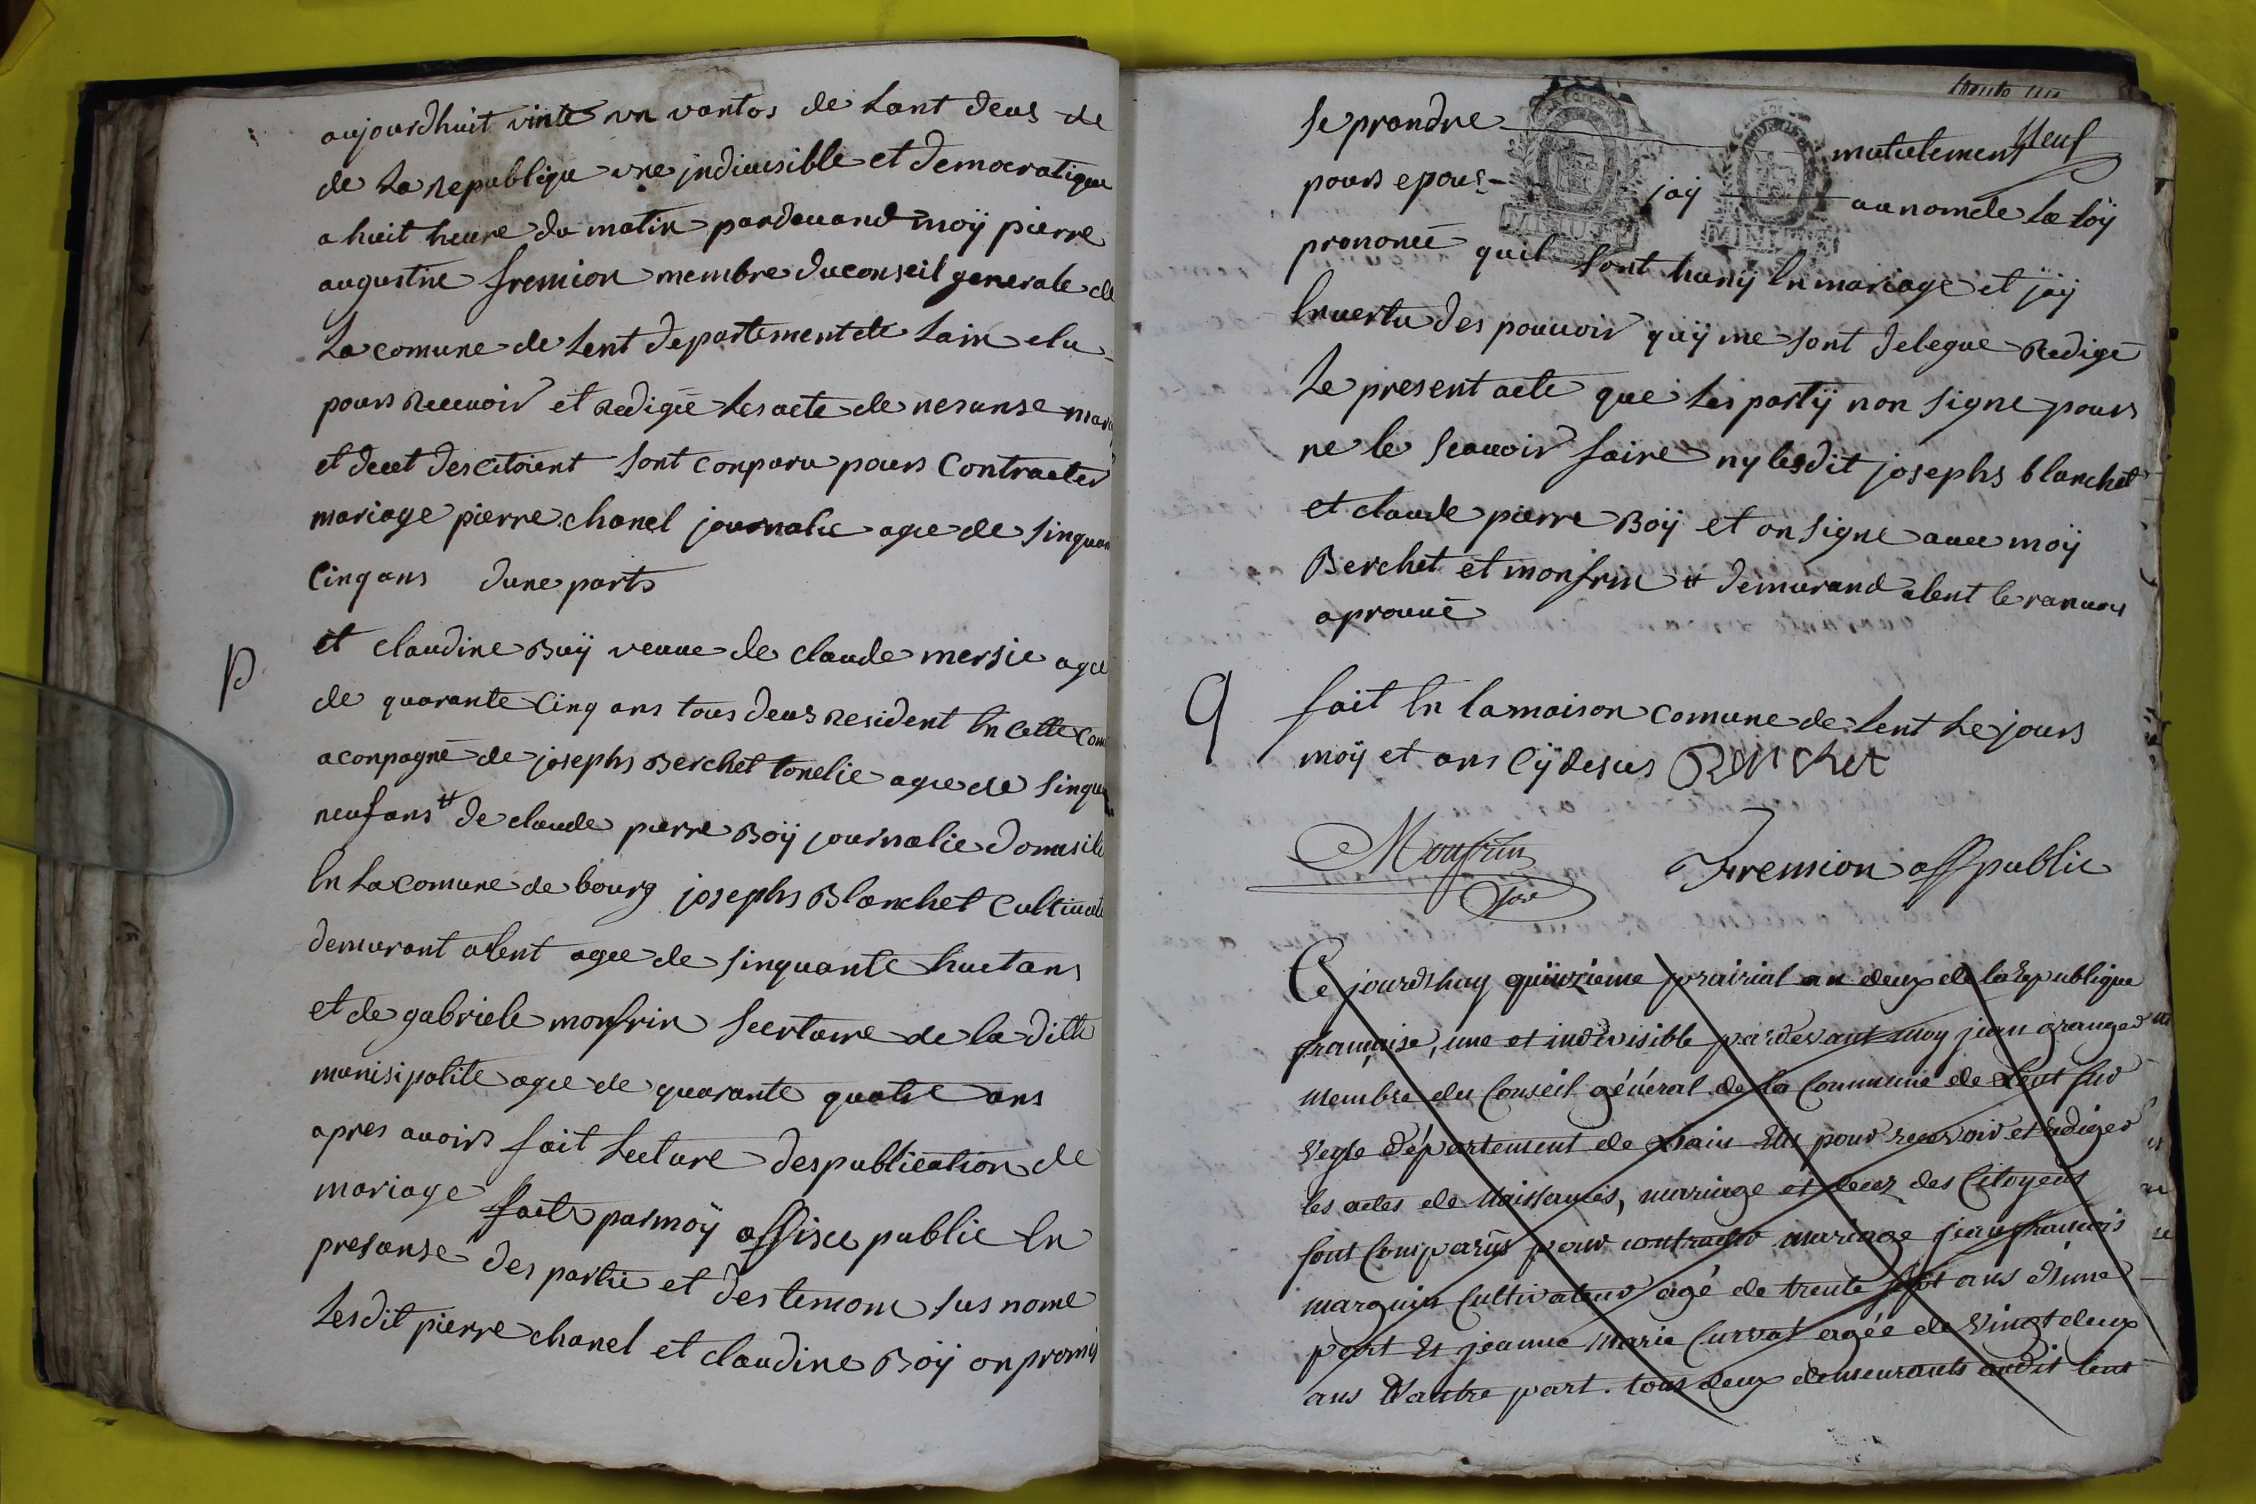 aujourdhuit vinte un vantos de Lant deus de
de La Republiqu une jndiuisible et democratique
a huit heure du matin pardeuand moÿ pierre
augustne fremion membre du conseil generale de
La comune de Lent departement de Lain elu
pours Receuoir et Redigée les acte de nesanse mar
et decet des citoient sont conparu pours Contracter
mariage pierre chanel journalie agee de sinquan
Cinq ans dune parts
et claudine Buÿ veuue de claude mersie agee
de quarante Cinq ans tous deus Resident En cette com
aconpagné de josephs Berchet tonelie agee de sinqua
neuf ans # de claude pierre Boÿ journalie domisile
En La Comune de bourg josephs Blanchet Cultiuate
demurant alent agee de sinquante huet ans
et de gabriele monfrin secrtaire de la ditte
munisipalite agee de quarante quatre ans
apres auoirs fait Lecture des publication de
mariage faite par moÿ offisie public En
presanse des partie et des temom sus nome
Lesdit pierre chanel et claudine Boÿ on promis
Neuf
se prandre mutulement
pours epous jaÿ au nom de La Loÿ
prononcé quil sont hunÿ En mariage et jaÿ
En uertu des pouuoir quÿ me sont delegue Redigé
Le present acte que Les partÿ non signe pours
ne le scauoir faire ny lesdit josephs blanchet
et claude pierre Boÿ et on signe auec moÿ
Berchet et monfrin # demurand alent le ranuos
aprouué
9 fait En la maison comune de Lent Le jours
moÿ et ans Cÿ desus Berchet
Monfrin
Fremion off public
Ce jourdhuy quinzieme prairial an deux de la republique
française, une et indivisible pardevant moy jean granger
membre du Conseil général de la Commune de Lent sur
Vegle département de Lain Elu pour recevoir et rediger
les actes de Naissances, mariage et decez des Citoyens
sont Comparüs pour contracter mariage jean francois
marguin Cultivateur agé de trente sept ans d'une
part Et jeanne Marie Curvat agée de Vingt deux
ans D'autre part. tous deux demeurants audit lent